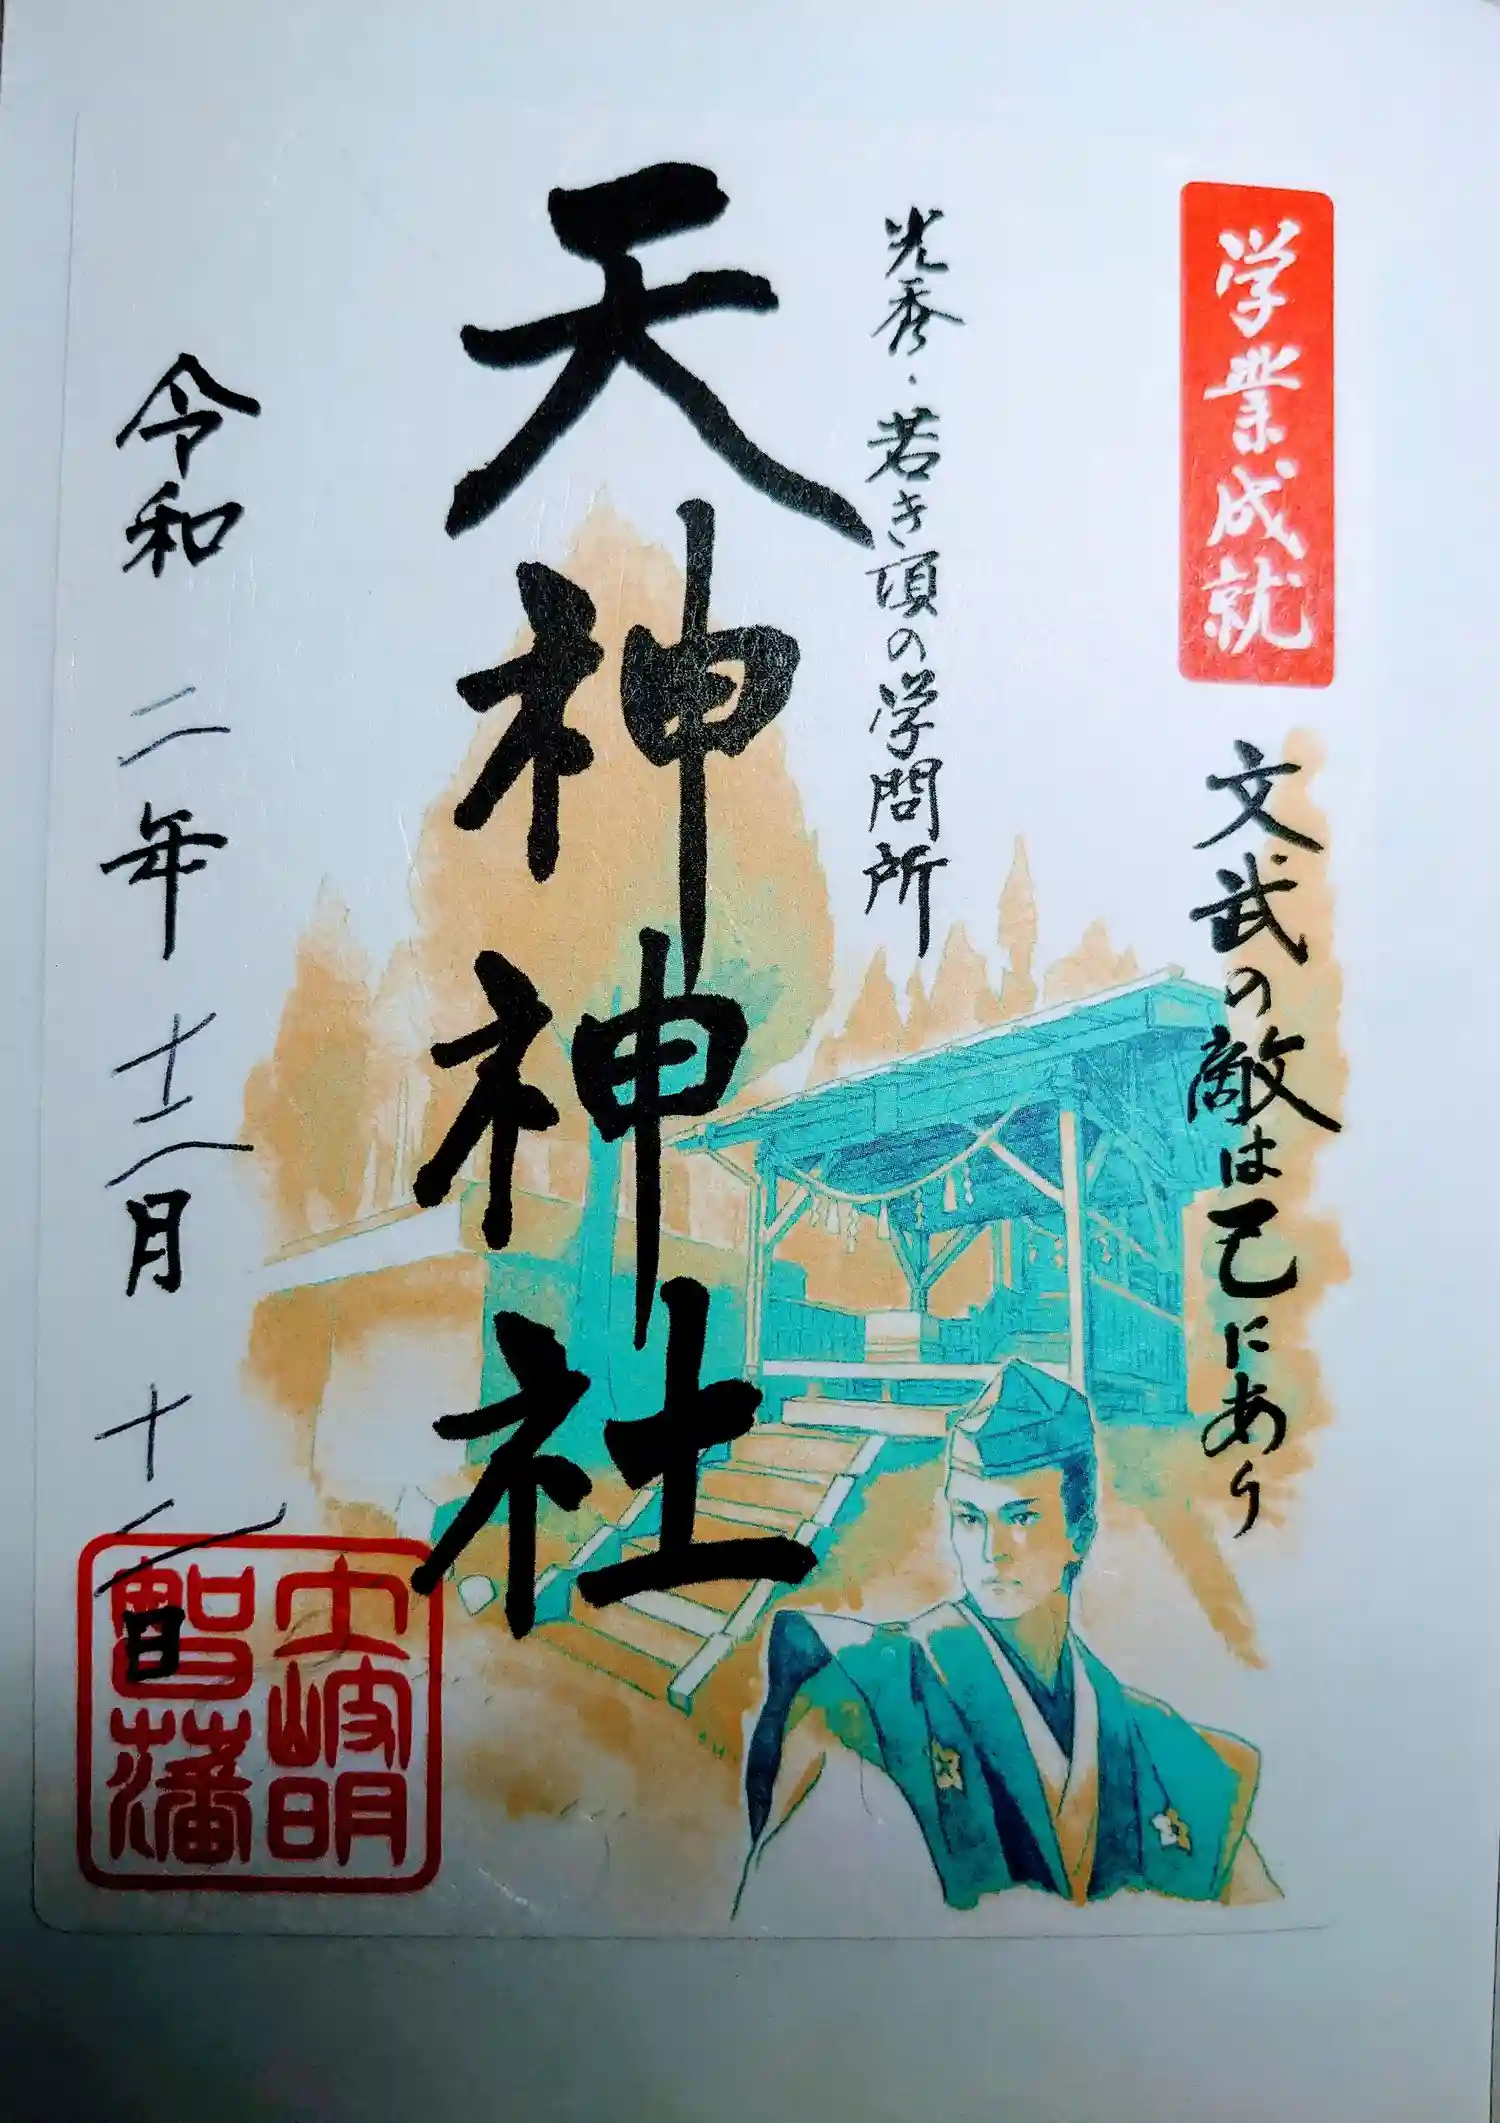 学業成就
文武の敵は己にあり
光秀・若き頃の学問所
天神神社
令和二年十二月十二日
土岐明
智藩